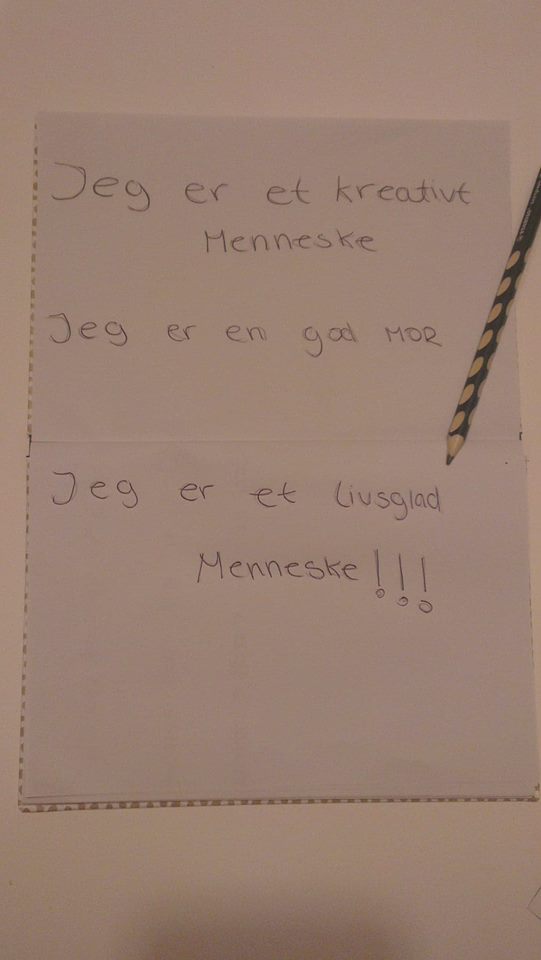 Jeg er et kreativt
Menneske
Jeg er en god MOR
Jeg er et livsglad
Menneske!!!